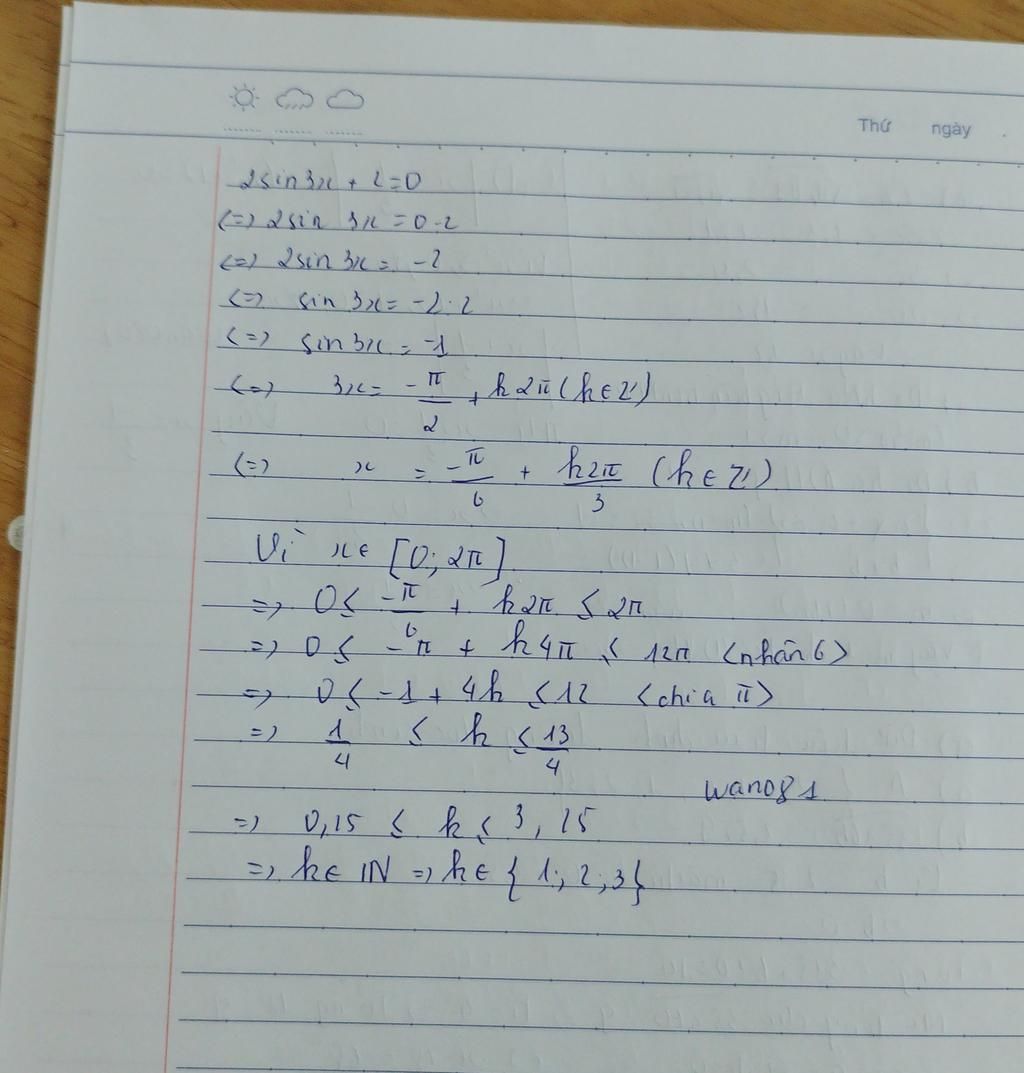 Thứ ngày .
2sin3x + 2 = 0
<=> 2sin 3x = 0-2
<=> 2sin 3x = -2
<=> sin 3x = -2:2
<=> sin 3x = -1
<=> 3x = -π/2 + k2π (k∈Z)
<=> x = -π/6 + k2π/3 (k∈Z)
Vì x∈ [0; 2π]
=> 0 ≤ -π/6 + k2π ≤ 2π
=> 0 ≤ -π + k4π ≤ 12π <nhân 6>
=> 0 ≤ -1 + 4k ≤ 12 <chia π>
=> 1/4 ≤ k ≤ 13/4
wano81
=> 0,15 ≤ k ≤ 3,25
=> k∈ IN => k∈ {1; 2; 3}